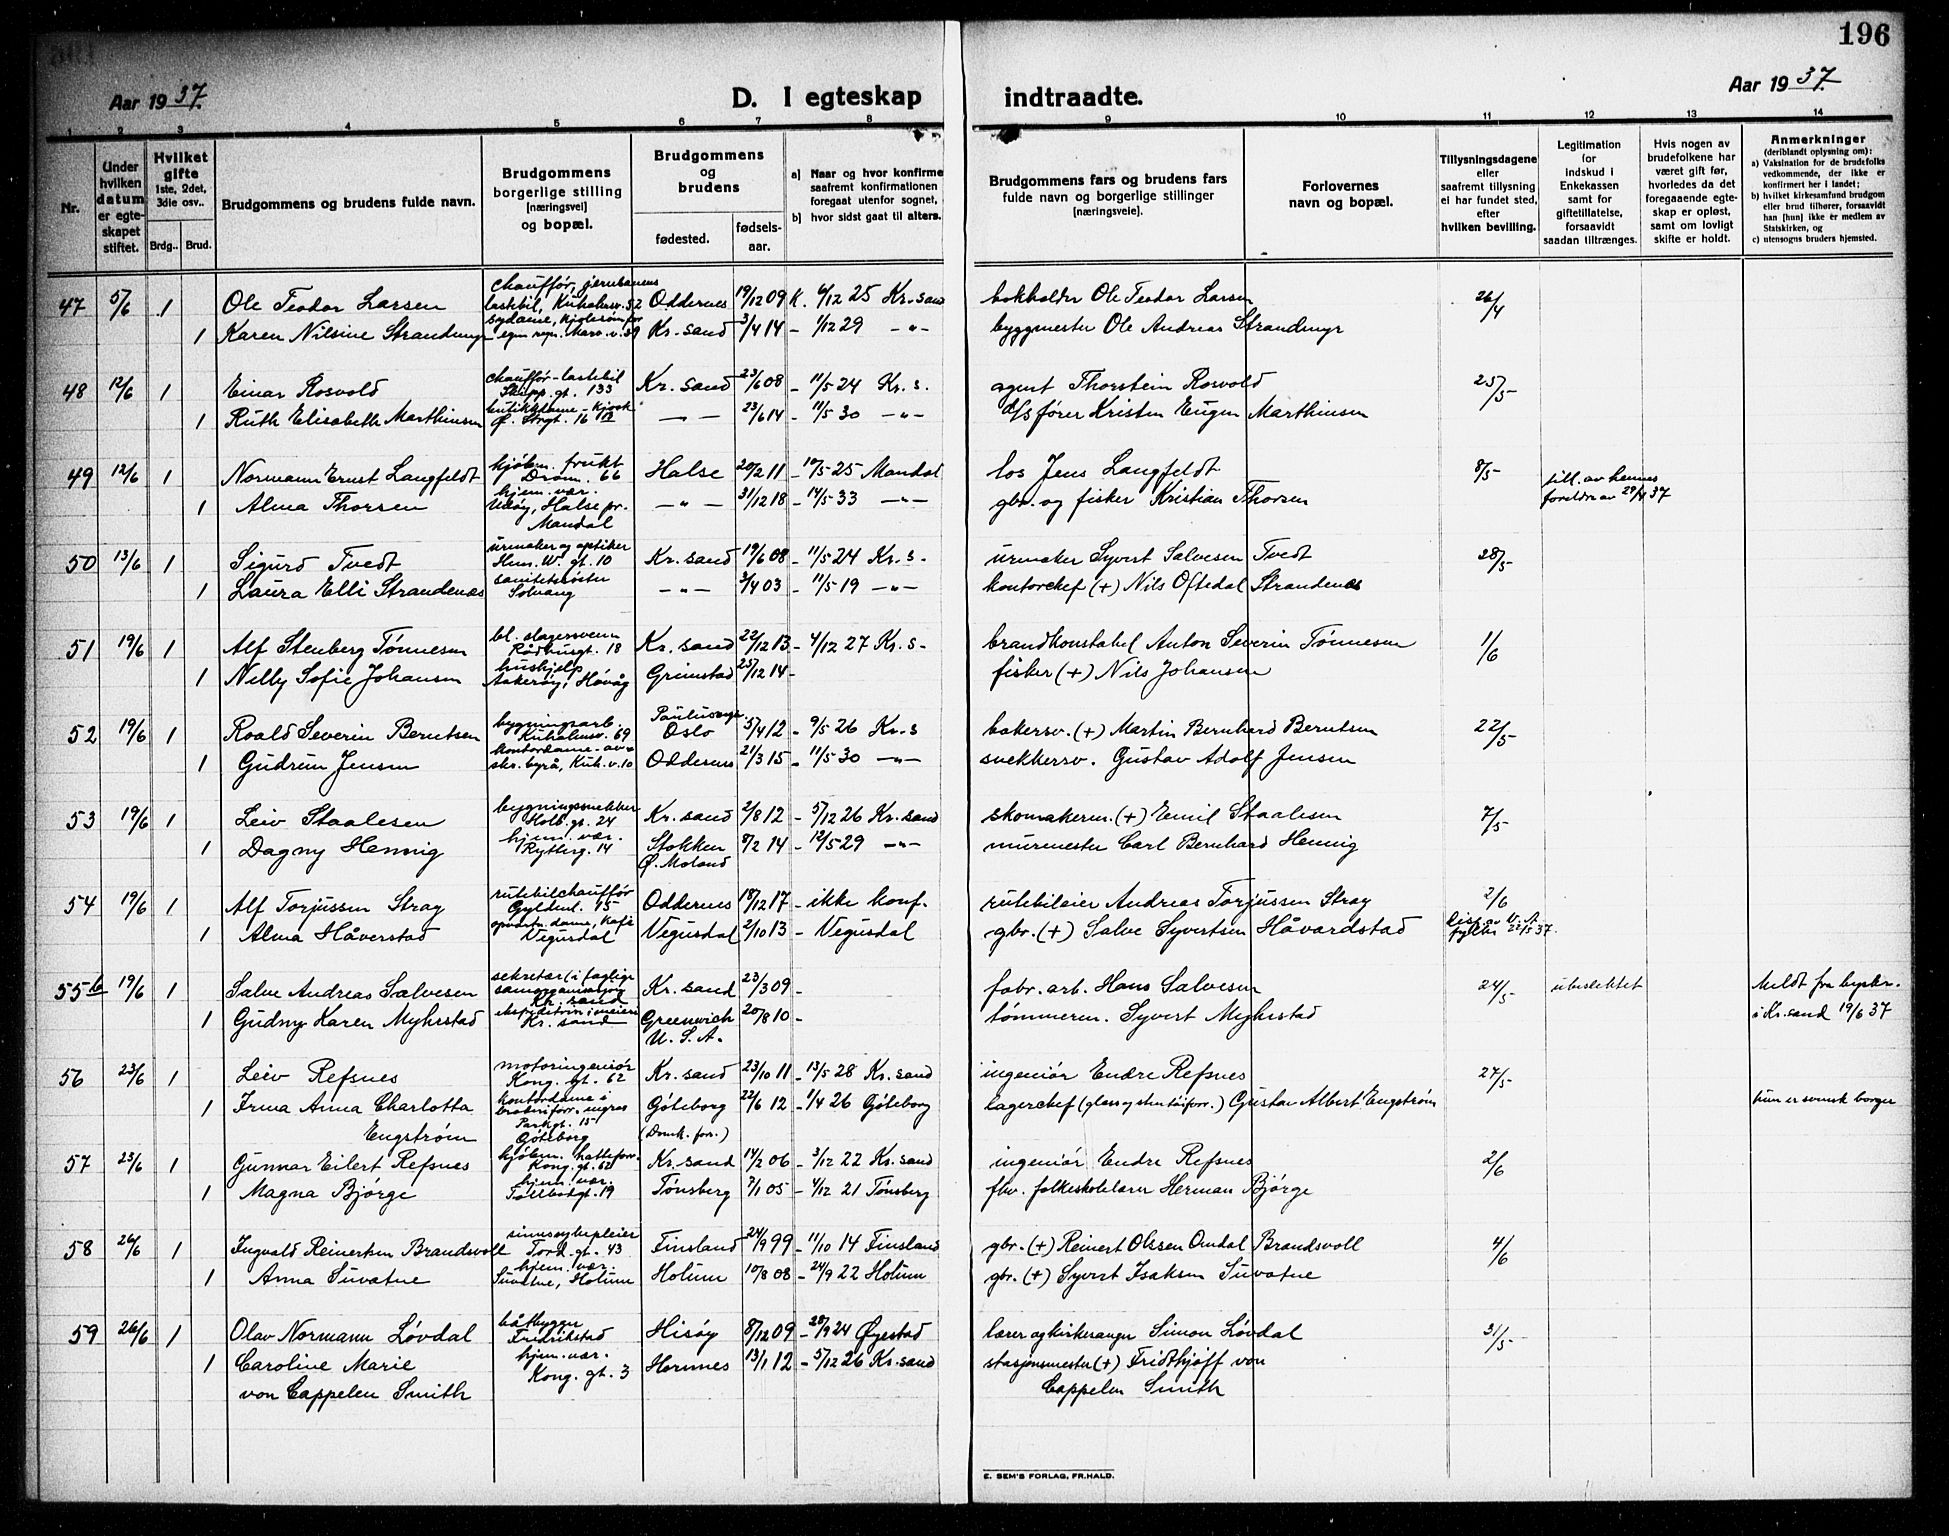 196
Aar 1937.
D. I egteskap indtraadte.
Aar 1937.
1 2 3 4 5 6 7 8 9 10 11 12 13 14
Nr.
Under hvilken datum er egteskapet stiftet.
Hvilket gifte 1ste, 2det, 3die osv..
Brdg.. Brud.
Brudgommens og brudens fulde navn.
Brudgommens borgerlige stilling [næringsvei] og bopæl.
Brudgommens og brudens
fødested. fødsels-aar.
a) Naar og hvor konfirme saafremt konfirmationen foregaat utenfor sognet,
b) hvor sidst gaat til alters.
Brudgommens fars og brudens fars fulde navn og borgerlige stillinger [næringsveie].
Forlovernes navn og bopæl.
Tillysningsdagene eller saafremt tillysning ei har fundet sted, efter hvilken bevilling.
Legitimation for indskud i Enkekassen samt for giftetillatelse, forsaavidt saadan tiltrænges.
Hvis nogen av brudefolkene har været gift før, hvorledes da det foregaaende egteskap er opløst, samt om lovligt skifte er holdt.
Anmerkninger (deriblandt oplysning om):
a) Vaksination for de brudefolks vedkommende, der ikke er konfirmert her i landet;
b) hvilket kirkesamfund brudgom eller brud tilhører, forsaavidt han [hun] ikke er medlem av Statskirken, og
c) utensogns bruders hjemsted.
47 5/6 1 Ole Teodor Larsen chauffør, jernbanens lastebil, Kuholmsv. 52 Oddernes 19/12 09 K. 6/12 25 Kr.sand bokholder Ole Teodor Larsen 26/4
1 Karen Nilsine Strandmyr Kr.sand 3/4 14 – 1/12 29 –"– byggmester Ole Andreas Strandmyr
48 12/6 1 Einar Rosvold chauffør-lastebil Skipp.gt. 133 Kr.sand 23/6 08 – 11/5 24 Kr.s. agent Thorstein Rosvold 25/5
1 Ruth Elisabeth Marthinsen butikkdame-kiosk Ø. Strgt. 16 –"– 23/6 14 – 11/5 30 –"– d/s fører Kristen Eugen Marthinsen
49 12/6 1 Normann Ernst Langfeldt kjøbm. frukt Dronn. 66 Halse 20/2 11 – 10/5 25 Mandal los Jens Langfeldt 8/5 till. av hennes
1 Alma Thorsen hjem. vær. Udøy, Halse pr. Mandal –"– 31/12 18 – 14/5 33 –"– gbr. og fisker Kristian Thorsen foreldre av 29/4 37
50 13/6 1 Sigurd Tvedt urmaker og optiker Hens. W. gt. 10 Kr.sand 19/6 08 – 11/5 24 Kr.s. urmaker Syvert Salvesen Tvedt 28/5
1 Laura Elli Strandenæs sanitetsøster Solvang –"– 3/4 03 – 11/5 19 –"– kontorchef (+) Nils Oftedal Strandenæs
51 19/6 1 Alf Stenberg Tønnesen bl. slagersvenn Rådhusgt. 18 Kr.sand 22/12 13 – 4/12 27 Kr.s. brandkonstabel Anton Severin Tønnesen 1/6
1 Nelly Sofie Johansen hushjelp Aakerøy, Høvåg Grimstad 25/12 14 – fisker (+) Nils Johansen
52 19/6 1 Roald Severin Berntsen bygningsarb. Kuholmsv. 69 Paulus menigh. Oslo 5/4 12 – 9/5 26 Kr.s bakersv. (+) Martin Bernhard Berntsen 22/5
1 Gudrun Jensen kontordame-av- skr. byrå, Kuh.v. 10 Oddernes 21/3 15 – 11/5 30 –"– snekkersv. Gustav Adolf Jensen
53 19/6 1 Leiv Staalesen bygningssnekker Holb.gt. 24 Kr.sand 2/8 12 – 5/12 26 Kr.sand skomakerm. (+) Emil Staalesen 7/5
1 Dagny Hennig hjem. vær. Rytterg. 14 Stokken Ø. Moland 8/2 14 – 12/5 29 –"– murmester Carl Bernhard Hennig
54 19/6 1 Alf Torjussen Stray rutebilchauffør Gyldenl. 45 Oddernes 18/12 17 – ikke konf. rutebileier Andreas Torjussen Stray 2/6
1 Alma Håverstad opvartn. dame, Kafé Vegusdal Vegusdal 2/10 13 – Vegusdal gbr. (+) Salve Syvertsen Håvardstad Disp. av V.A. fylke 22/5 37.
55b 19/6 1 Salve Andreas Salvesen sekretær (i faglige samorganisasjon Kr.sand Kr.sand 23/3 09 – fabr.arb. Hans Salvesen 24/5 ubeslektet Meldt fra byskr.
1 Gudny Karen Myhrstad ekspeditrise i meieri Kr.sand Greenwich U.S.A. 20/8 10 – tømmerm. Syvert Myhrstad i Kr.sand 19/6 37
56 23/6 1 Leiv Refsnes motoringeniør Kong. gt. 62 Kr.sand 23/10 11 – 13/5 28 Kr.sand ingeniør Endre Refsnes 27/5
1 Irma Anna Charlotta Engstrøm kontordame i Parkgt. 15 Göteborg Göteborg (Domk. for.) 22/6 12 – 1/4 26 Göteborg lagerchef Gustav Albert Engstrøm hun er svensk borger
57 23/6 1 Gunnar Eilert Refsnes kjøbm. hatteforr. Kong. gt. 62 Kr.sand 14/2 06 – 3/12 22 Kr.sand ingeniør Endre Refsnes 2/6
1 Magna Bjørge hjem. vær. Tollbodgt. 19 Tønsberg 7/1 05 – 4/12 21 Tønsberg fhv. folkeskolelærer Herman Bjørge
58 26/6 1 Ingvald Reinertsen Brandsvoll sinnssykepleier Tord. gt. 43 Finsland 24/9 99 – 11/10 14 Finsland gbr. (+) Reinert Olssen Omdal Brandsvoll 4/6
1 Anna Suvatne hjem. vær. Suvatne, Holum Holum 10/8 08 – 24/9 22 Holum gbr. (+) Syvert Isaksen Suvatne
59 26/6 1 Olav Normann Løvdal båtbygger Fredrikstad Hisøy 8/12 09 – 28/9 24 Øyestad lærer og kirkesanger Simon Løvdal 31/5
1 Caroline Marie von Cappelen Smith hjem. vær. Kong. gt. 3 Hornnes 13/1 12 – 5/12 26 Kr.sand stasjonsmester (+) Fridthjoff von Cappelen Smith
E. SEM'S FORLAG, FR.HALD.